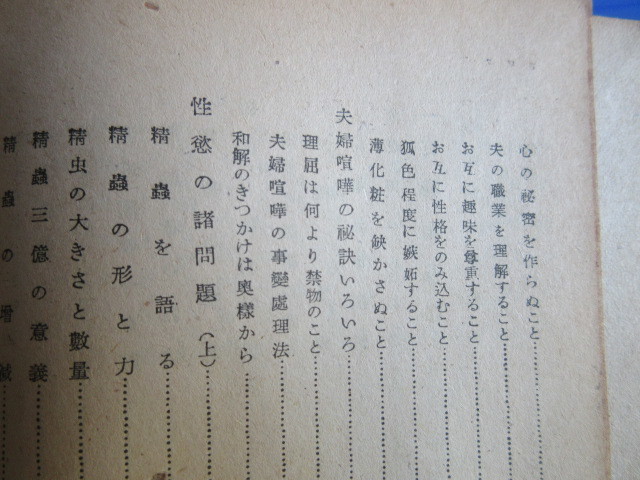 心の祕密を作らぬこと…………
夫の職業を理解すること…………
お互に趣味を尊重すること…………
お互に性格をのみ込むこと…………
狐色程度に嫉妬すること…………
薄化粧を缺かさぬこと…………
夫婦喧嘩の祕訣いろいろ…………
理屈は何より禁物のこと…………
夫婦喧嘩の事變處理法…………
和解のきつかけは奥樣から…………
性慾の諸問題(上)…………
精蟲を語る…………
精蟲の形と力…………
精虫の大きさと數量…………
精蟲三億の意義…………
精蟲の増減